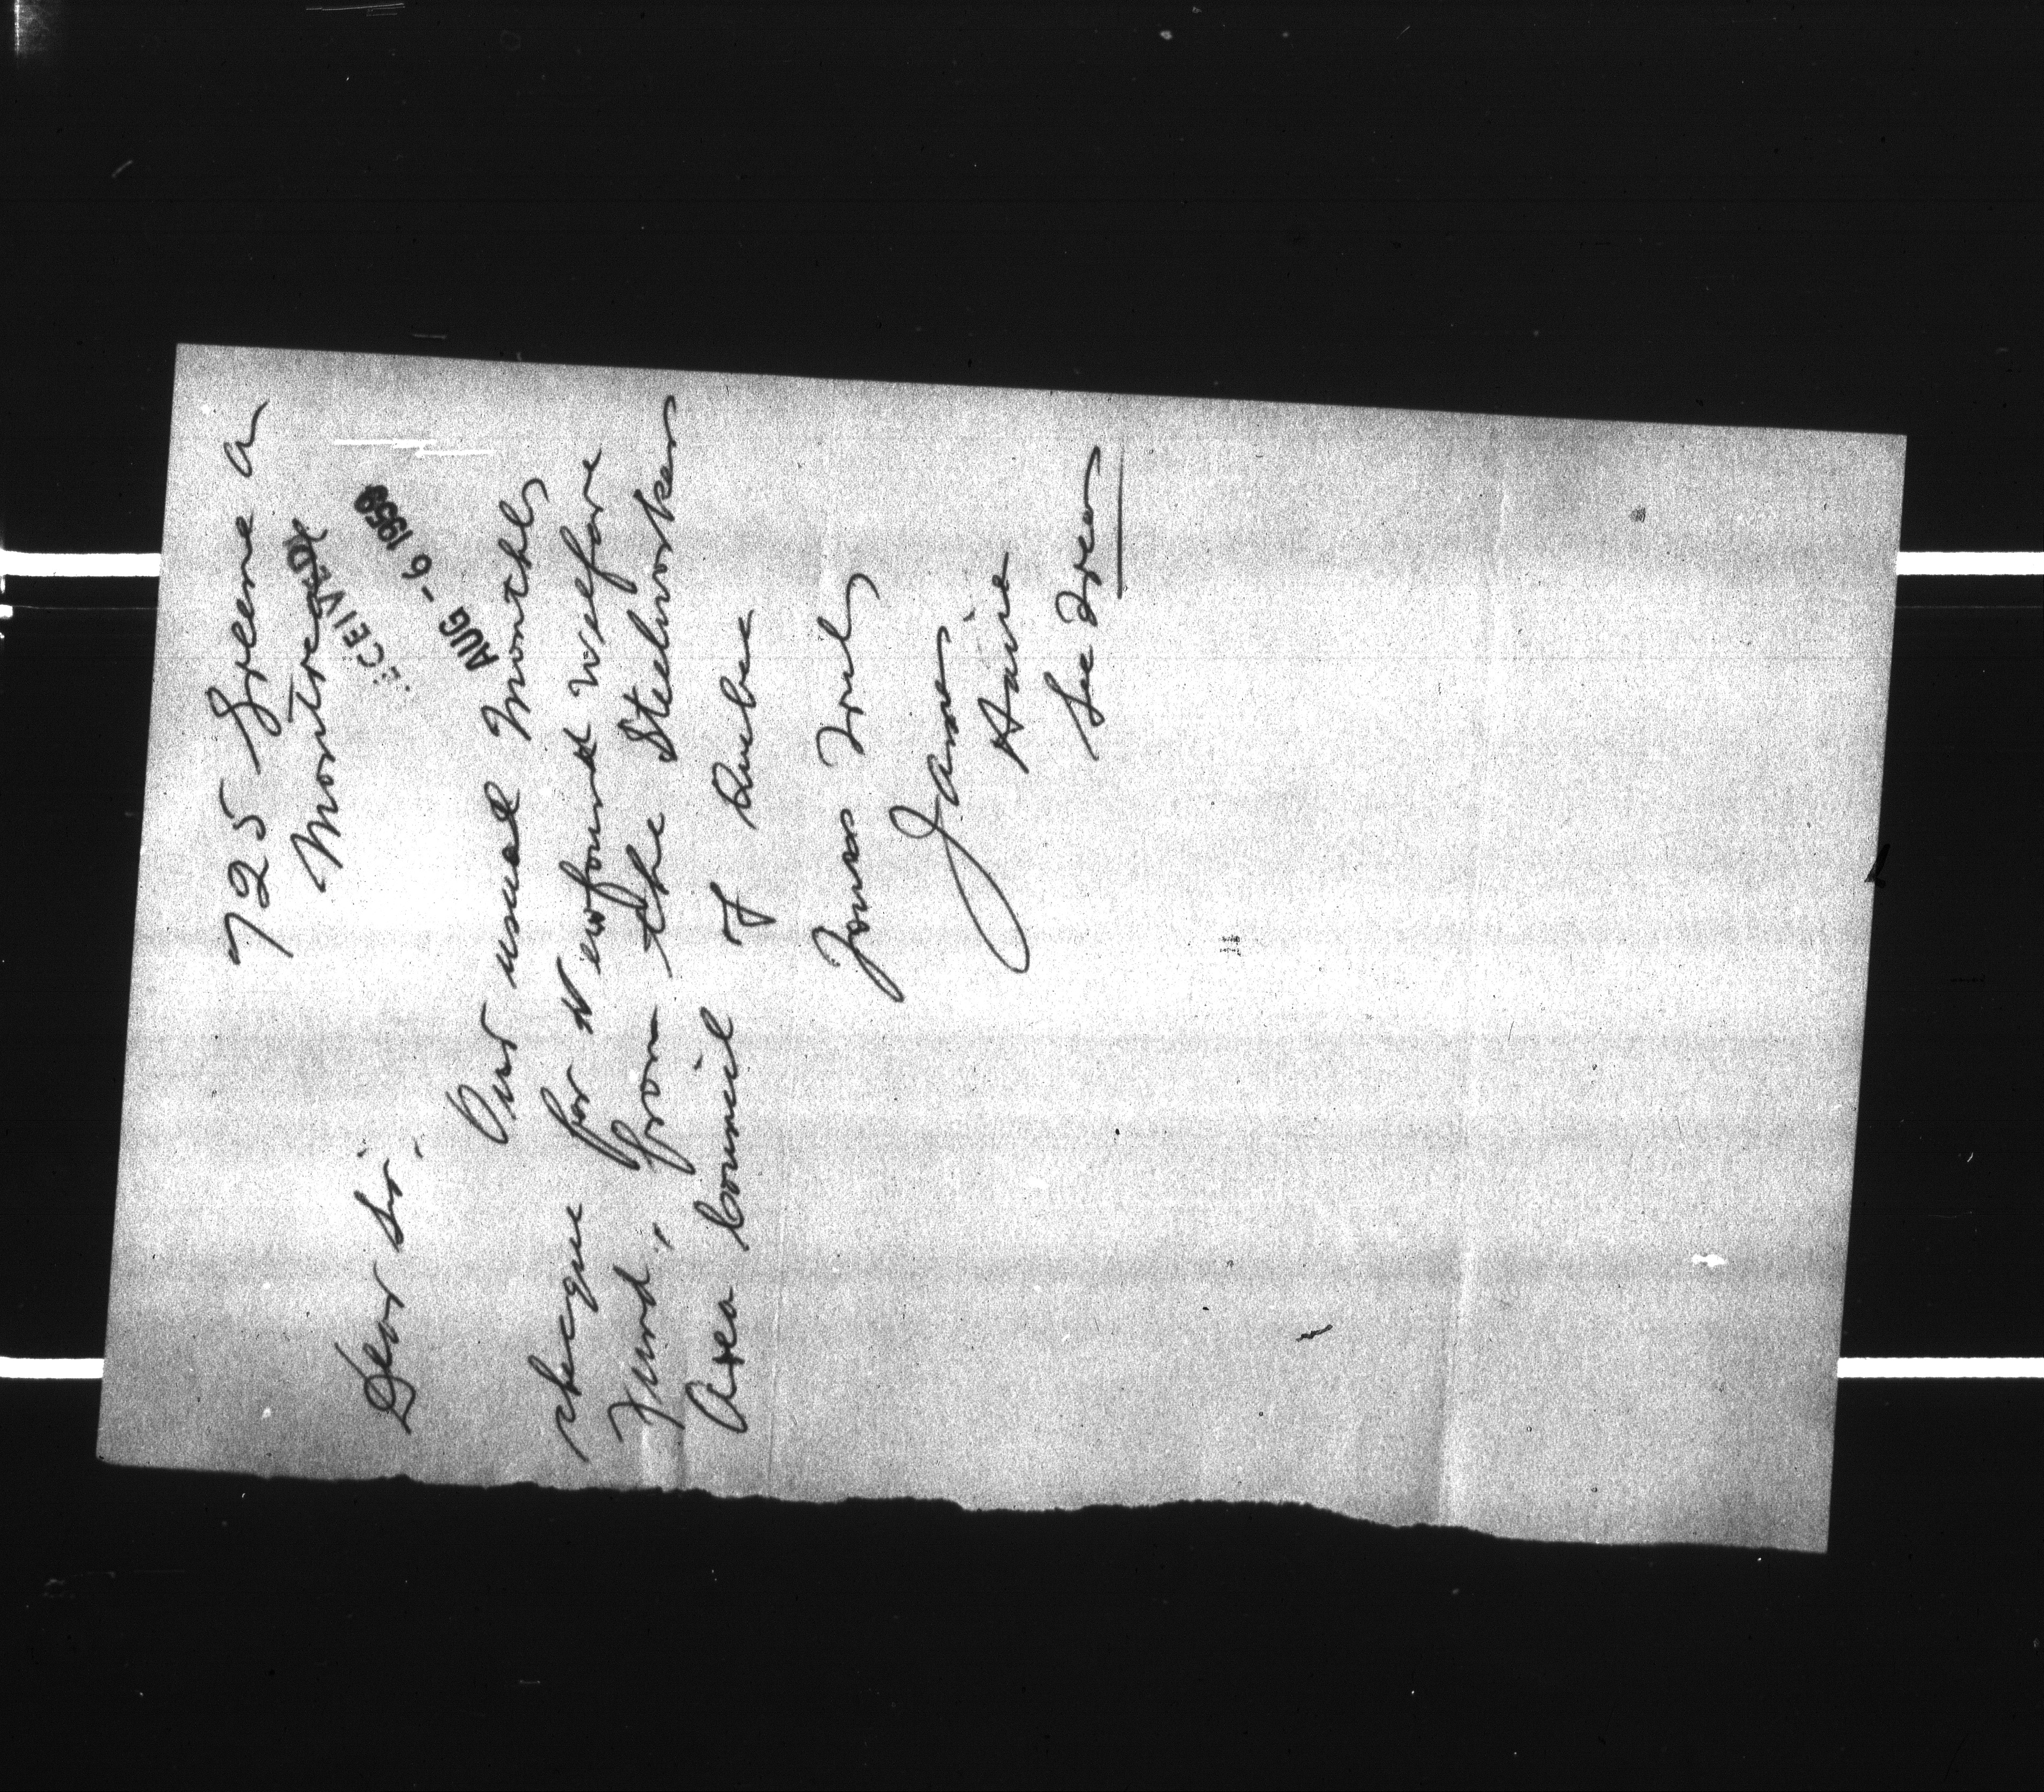 725 Greene a
Montreal
RECEIVED
AUG - 6 1959
Dear Sir.
Our usual Monthly
cheque for Newfound Welfare
Fund, from the Steelworkers
Area Council of Quebec
Yours Truly
James
Haire
Sec Treas